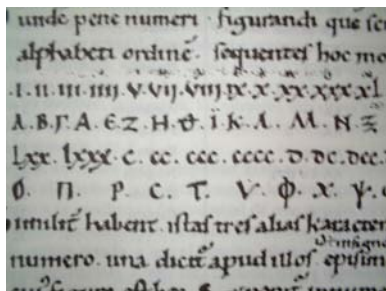 unde pene numeri · figurandi que
alphabeti ordinē · sequentes hoc mo
·I·II·III·IIII·V·VIJ·VIIJ·IX·X·XX·XXX·XL
Α·Β·Γ·Δ·Є·Ζ·Η·Θ·Ϊ·Κ·Λ·Μ·Ν·Ξ
lxx·lxxx·c·cc·ccc·cccc·D·DC·DCC·
Ο·Π·Ρ·С·Τ·V·Φ·Χ·Ψ·
habent · istas tres alias karacter
numero · una dicit apud illos episim